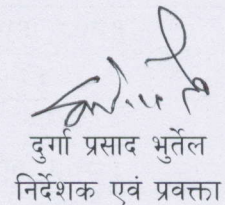 दुर्गा प्रसाद भुर्तेल
निर्देशक एवं प्रवक्ता